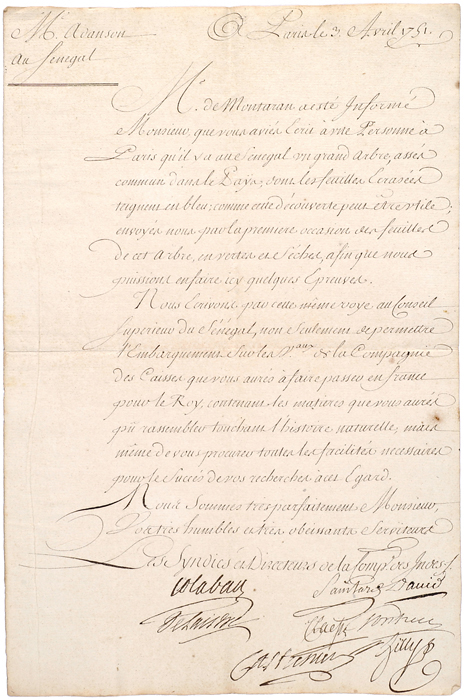 M. Adanson
Au Senegal
A Paris le 3. Avril 1751.
M. de Montaran a esté Informé
Monsieur, que vous aviés Ecrit a une Personne à
Paris qu'il y a au Senegal un grand Arbre, assés
commun dans le Pays, dont les feuilles Ecrasées
teignent en bleu; comme cette découverte peut être utile,
envoyés nous par la premiere occasion des feuilles
de cet Arbre, en vertes et Séches, afin que nous
puissions en faire icy quelques Epreuves.
Nous Ecrivons, par cette même voye au Conseil
Superieur du Sénégal, non seulement de permettre
l'Embarquement Sur les V.aux de la Compagnie
des Caisses que vous aurés à faire passer en france
pour le Roy, contenant les matieres que vous aurés
pû rassembler touchant l'histoire naturelle, mais
même de vous procurer toutes les facilités necessaires
pour le Succés de vos recherches à cet Egard.
Nous Sommes tres parfaitement Monsieur,
Vos tres humbles et tres obéissants Serviteurs
Les Syndics et Directeurs de la Comp.e des Indes
Colabau
Saintard David
Gilly